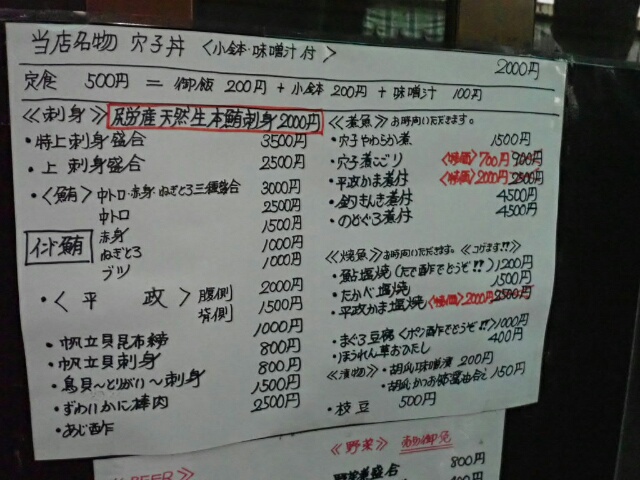 当店名物 穴子丼 〈小鉢・味噌汁付〉 2000円
定食 500円 = 御飯 200円 + 小鉢 200円 + 味噌汁 100円
≪刺身≫ 尻労産天然生本鮪刺身2000円
・特上刺身盛合 3500円
・上刺身盛合 2500円
・〈鮪〉中トロ・赤身・ねぎとろ三種盛合 3000円
中トロ 2500円
インド鮪
赤身 1500円
ねぎとろ 1000円
ブツ 1000円
・〈平政〉腹側 2000円
背側 1500円
・帆立貝昆布締 1000円
・帆立貝刺身 800円
・鳥貝~とりがい~刺身 800円
・ずわいかに棒肉 1500円
・あじ酢 2500円
≪煮魚≫お時間いただきます。
・穴子やわらか煮 1500円
・穴子煮こごり 〈特価〉700円 900円
・平政かま煮付 〈特価〉2000円 2500円
・釣きんき煮付 4500円
・のどぐろ煮付 4500円
≪焼魚≫お時間いただきます。≪コゲます!!≫
・鮎塩焼(たで酢でどうぞ!!) 1200円
・たかべ塩焼 1500円
・平政かま塩焼 〈特価〉2000円 2500円
・まぐろ豆腐〈ポン酢でどうぞ!!〉1000円
・ほうれん草おひたし 400円
≪漬物≫・胡瓜味噌漬 200円
・胡瓜かつお節醤油会え 150円
・枝豆 500円
≪野菜≫
野菜盛合 800円
BEER≫